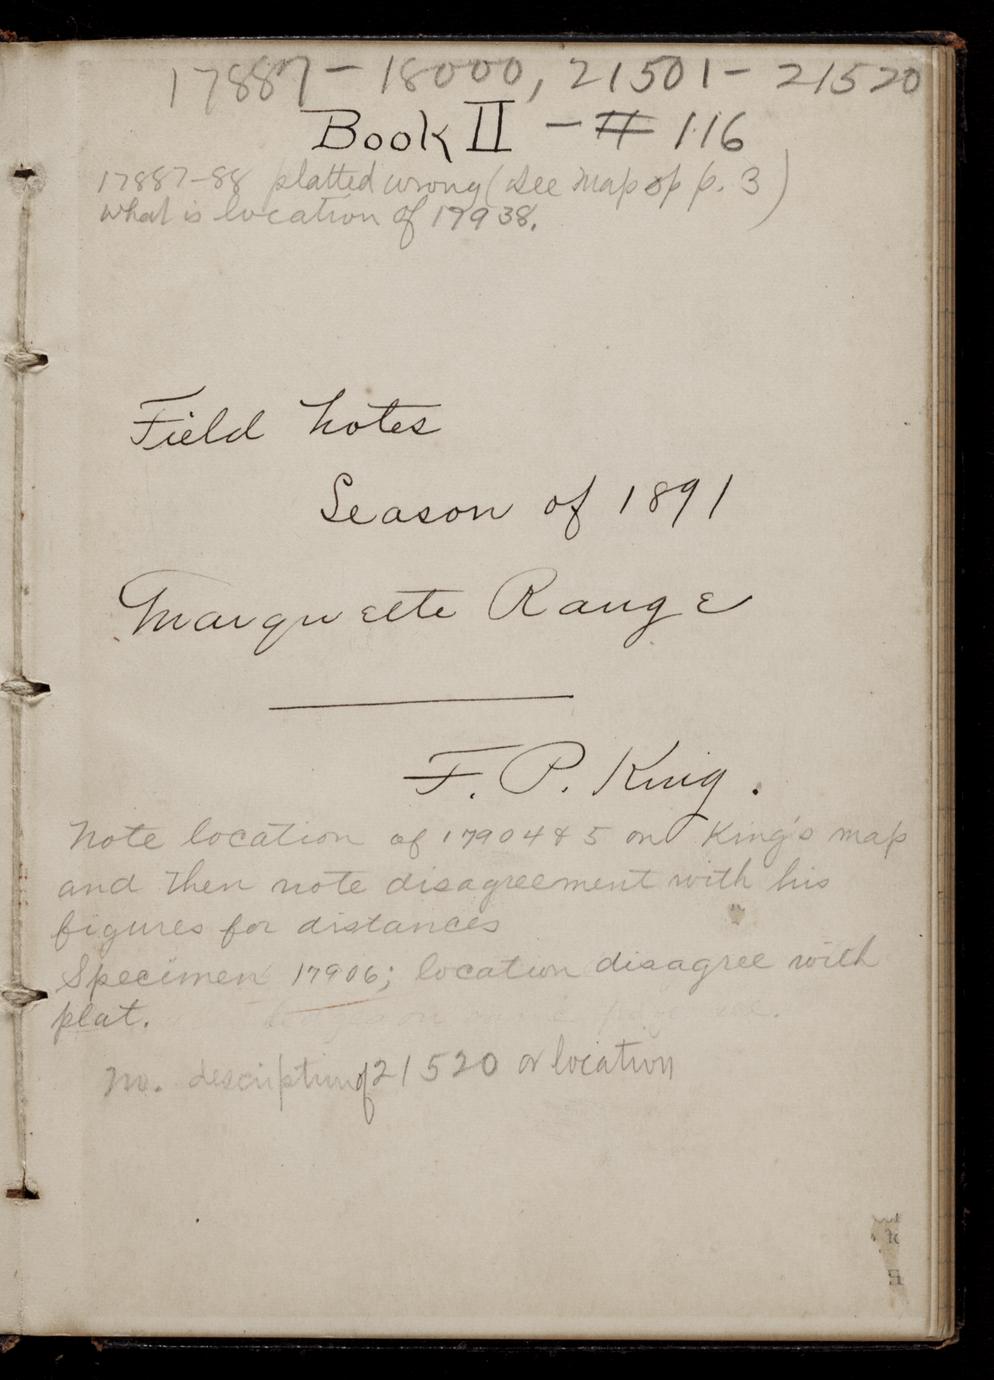 17887 - 18000, 21501 - 21520
Book II - # 116
17887-88 platted wrong (see map op p. 3)
What is location of 17938.
Field Notes
Season of 1891
Marquette Range
F. P. King.
Note location of 17904 & 5 on King's map
and then note disagreement with his
figures for distances
Specimen 17906; location disagree with
plat.
No. description of 21520 or location